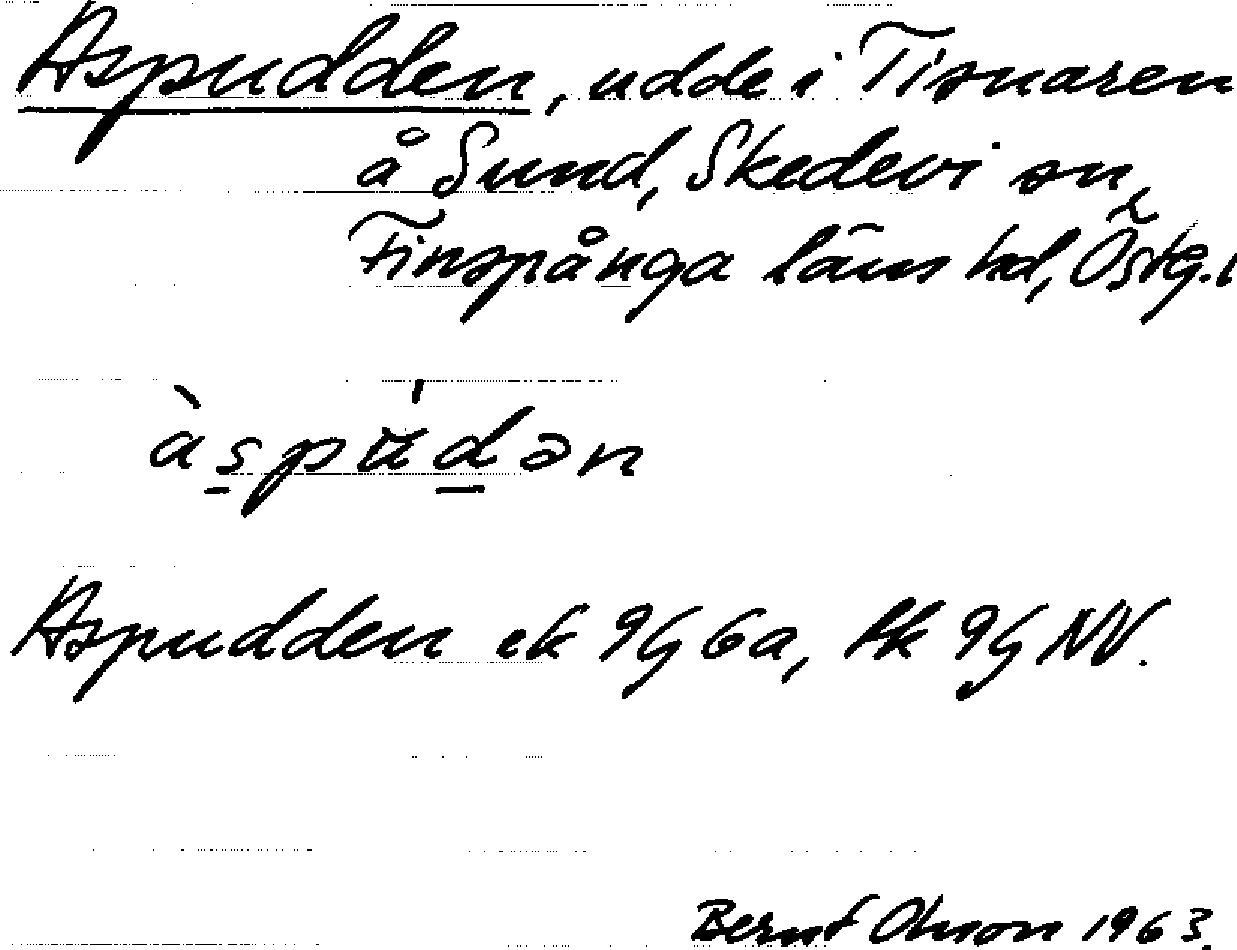 Aspudden, udde i Tisnaren
å Sund, Skedevi sn,
Finspånga läns hd, Östg. l
àspu̇dən
Aspudden ek 9G 6a, tk 9G NV.
Bernt Olsson 1963.